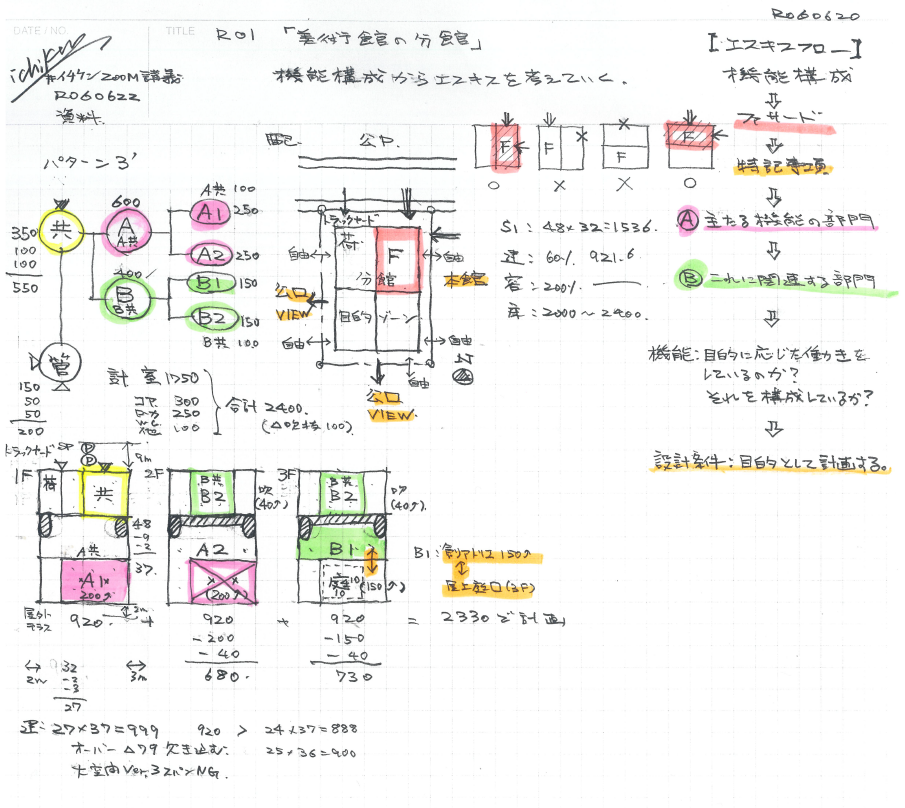 R060620
DATE / NO.
TITLE
R01 「美術館の分館」
【エスキスフロー】
ichiken
#イチケンZOOM講義
R060622
資料
機能構成からエスキスを考えていく.
機能構成
⇩
ファサード
⇩
特記事項
⇩
Ⓐ 主たる機能の部門
⇩
Ⓑ これに関連する部門
⇩
機能:目的に応じた働きを
しているのか?
それを構成しているか?
⇩
設計条件:目的として計画する。
パターン3'
共
350
100
100
550
600
A
A共
A共 100
A1 250
A2 250
400
B
B共
B1 150
B2 150
B共 100
管
150
50
50
200
計 室 1750
コア 300
ロ-カ 250
他 100
合計 2400.
(△吹抜100)
公P.
トラックヤード
荷
F
分館
目的 ゾーン
自由
自由
自由
自由
自由
本館
公口
VIEW
公口
VIEW
N
F
F
F
F
○ × × ○
S1 : 48×32=1536.
建 : 60% 921.6
容 : 200%
床 : 2000~2400.
トラックヤード
SP
P
P
9m
1F
荷
共
A共
A1
200↑
48
-9
-2
37
2m
屋外テラス
2F
B共
B2
吹
(40↑)
A2
(200↑)
3F
B共
B2
吹
(40↑).
B1
10
10
(150↑)
B1: 創アトリエ150↑
屋上庭口(3F)
920 + 920 + 920 = 2330で計画
-200
-40
680.
-150
-40
730
2m
32
-2
-3
27
3m
建:27×37=999 920 > 24×37=888
オーバー△79 欠き込む. 25×36=900
大空間Ver.3スパンNG.